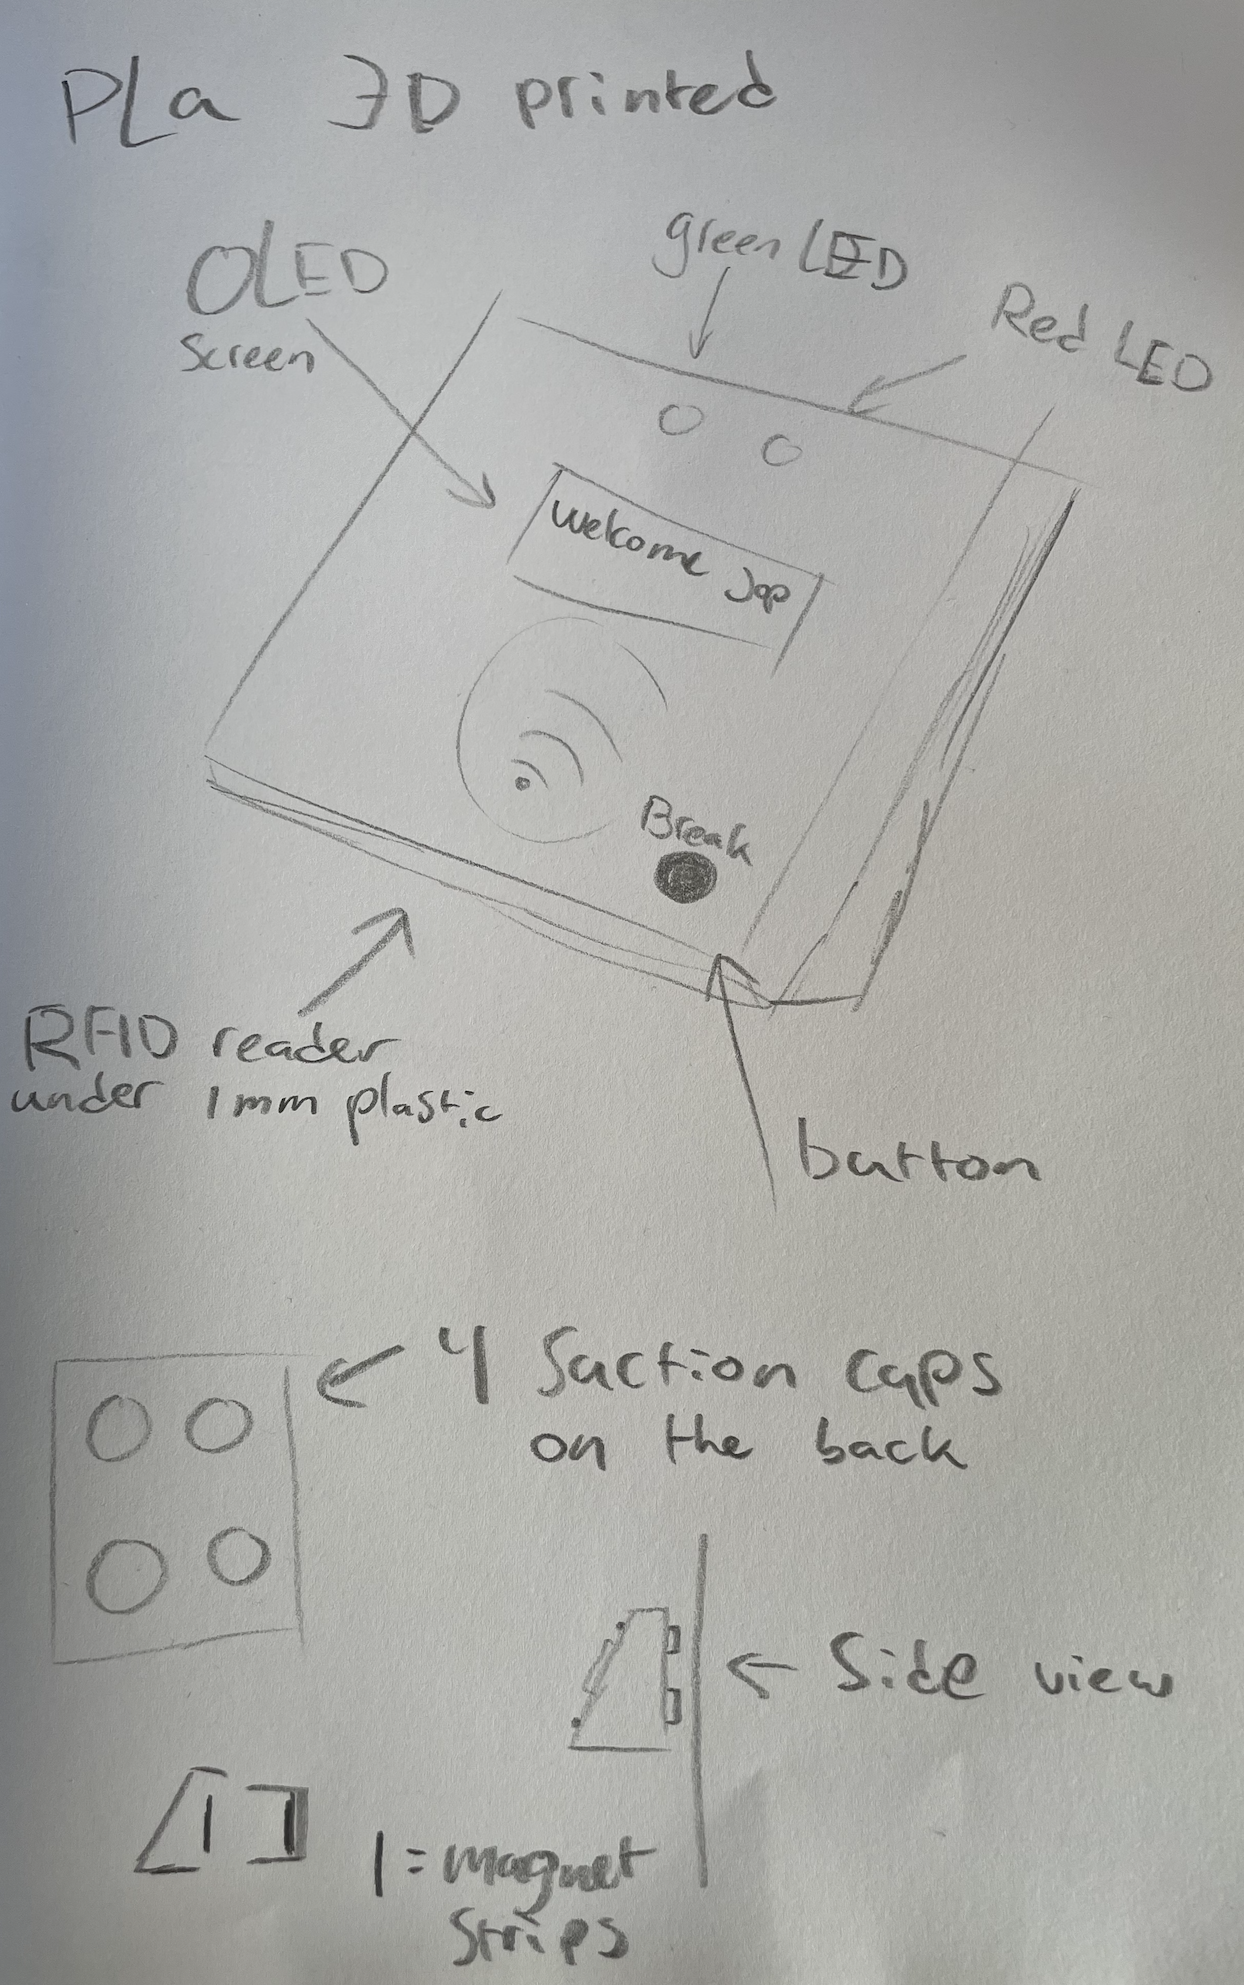 PLa 3D printed
OLED
Screen
green LED
Red LED
welkome Jop
Break
RFID reader
under 1mm plastic
button
4 Suction caps
on the back
Side view
| = magnet
Strips